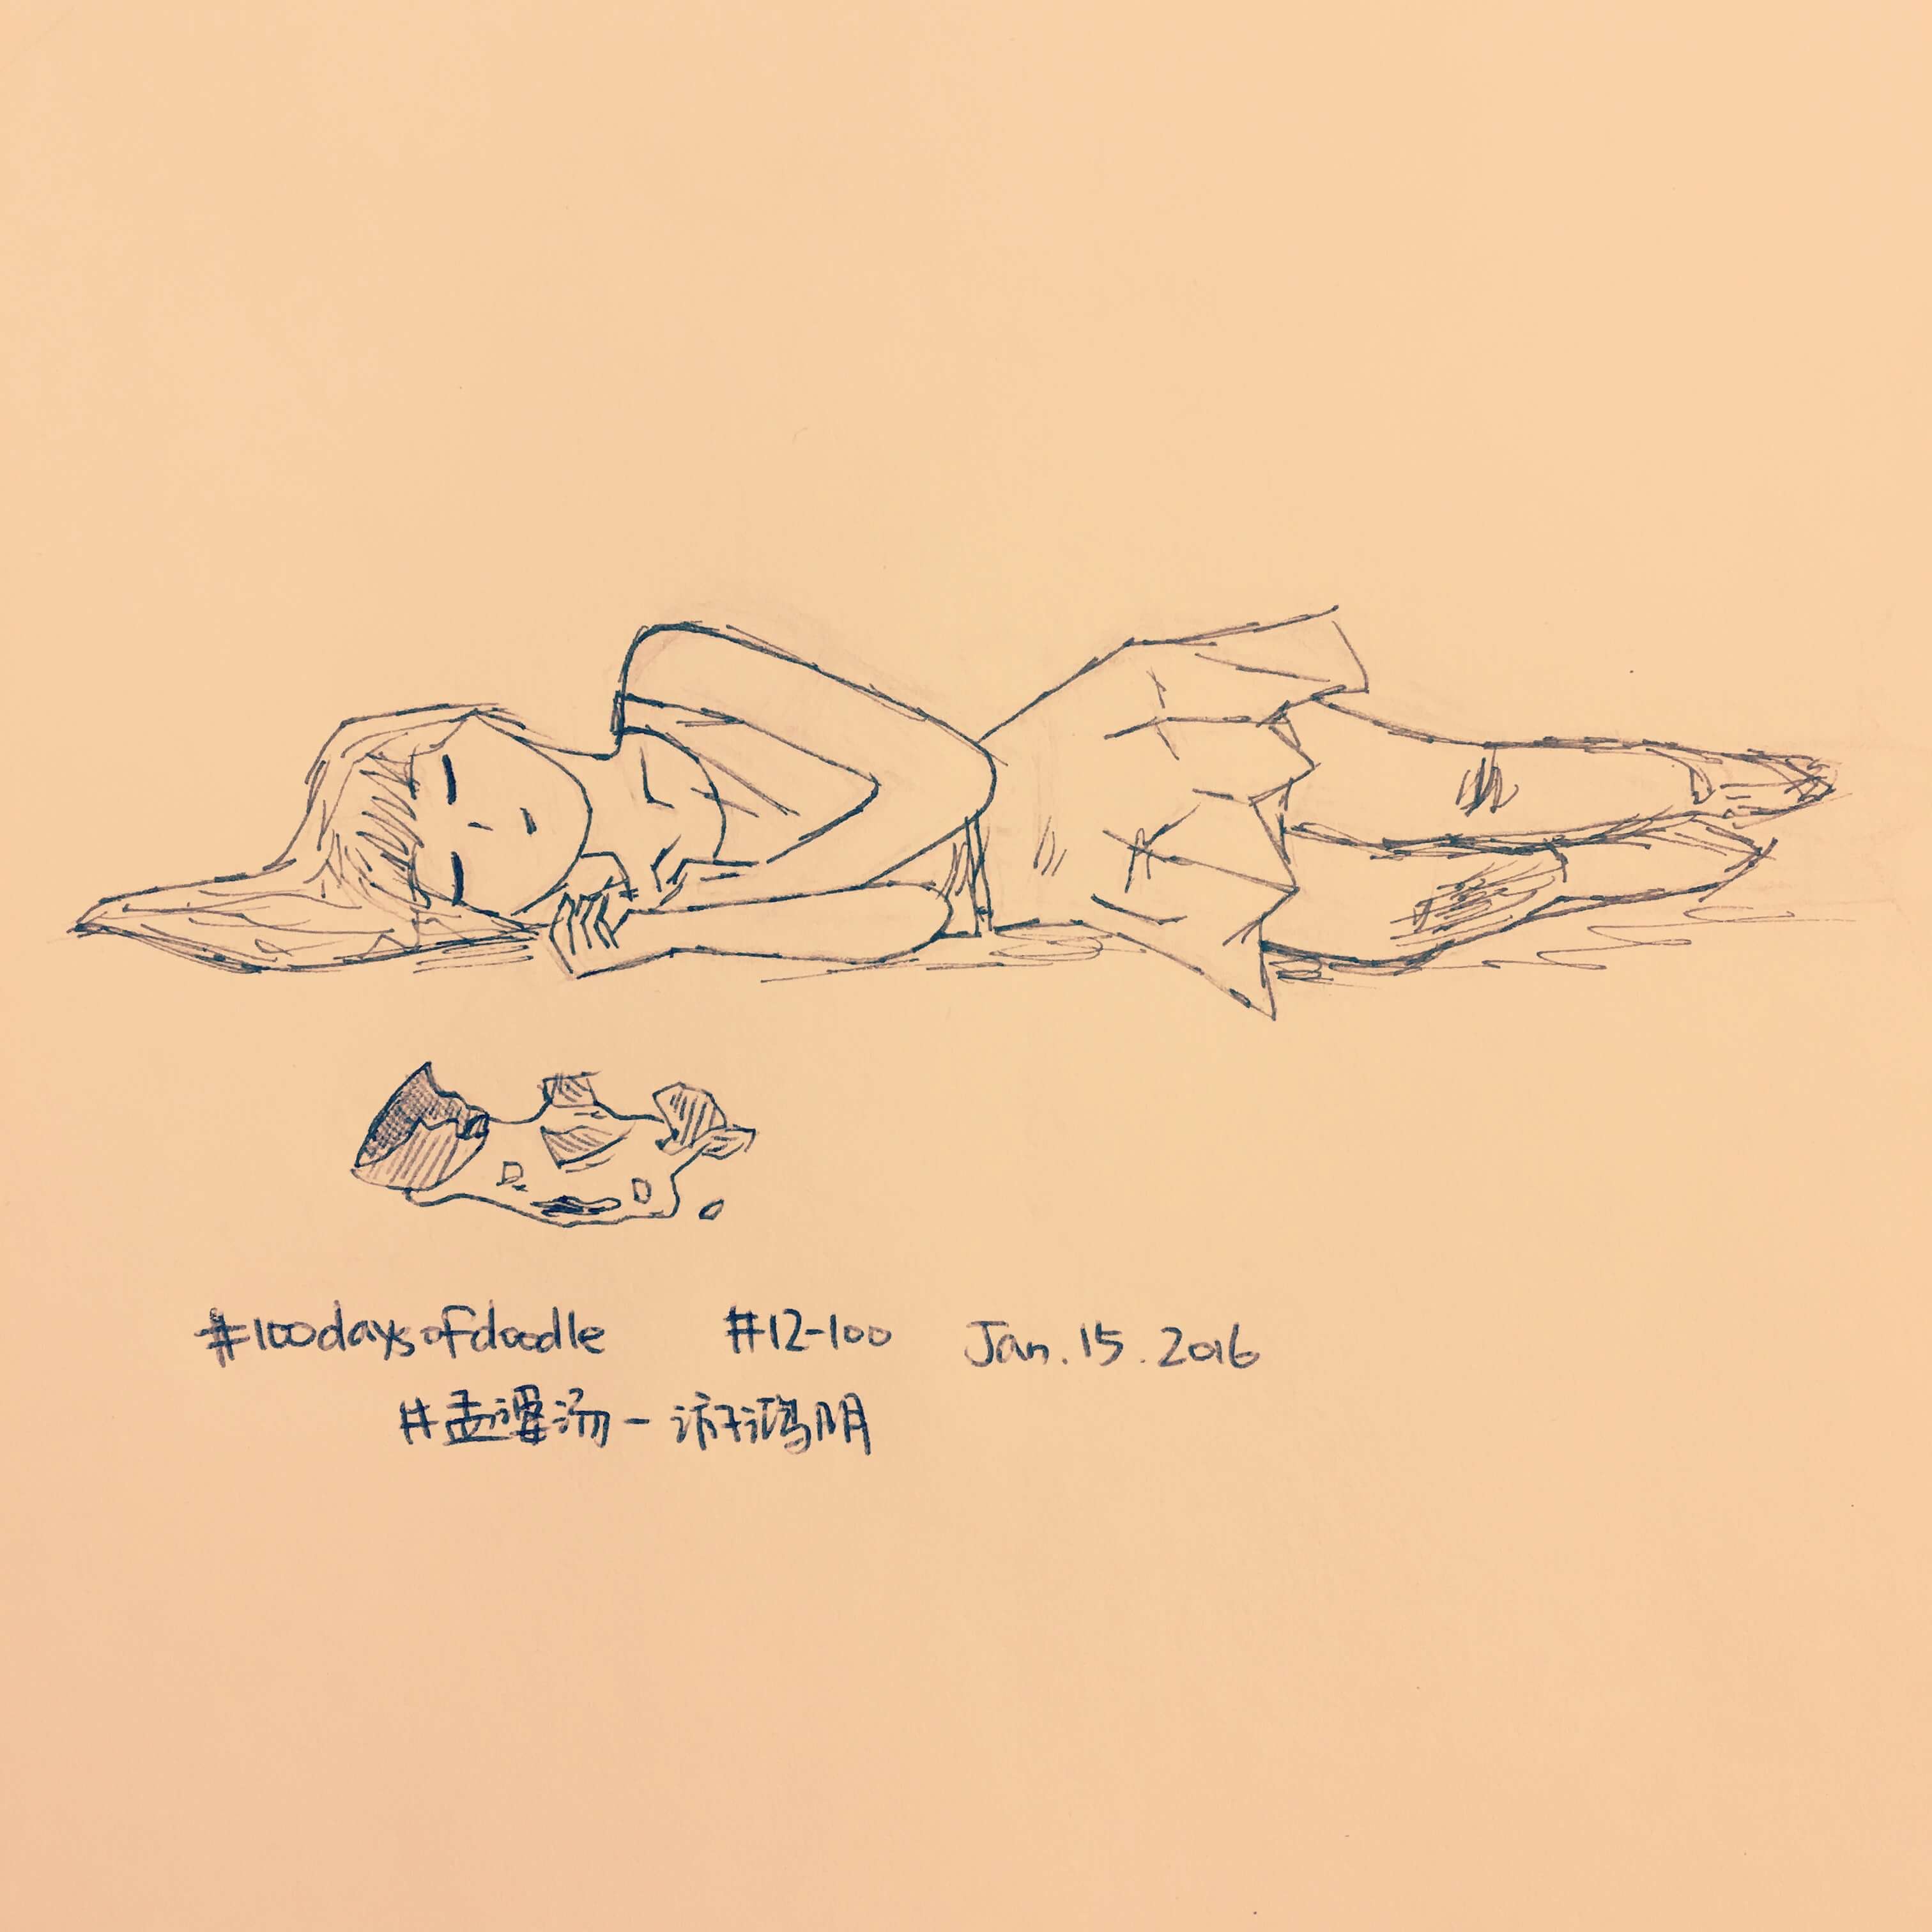 #100daysofdoodle #12-100 Jan.15.2016
#孟婆汤-游鸿明